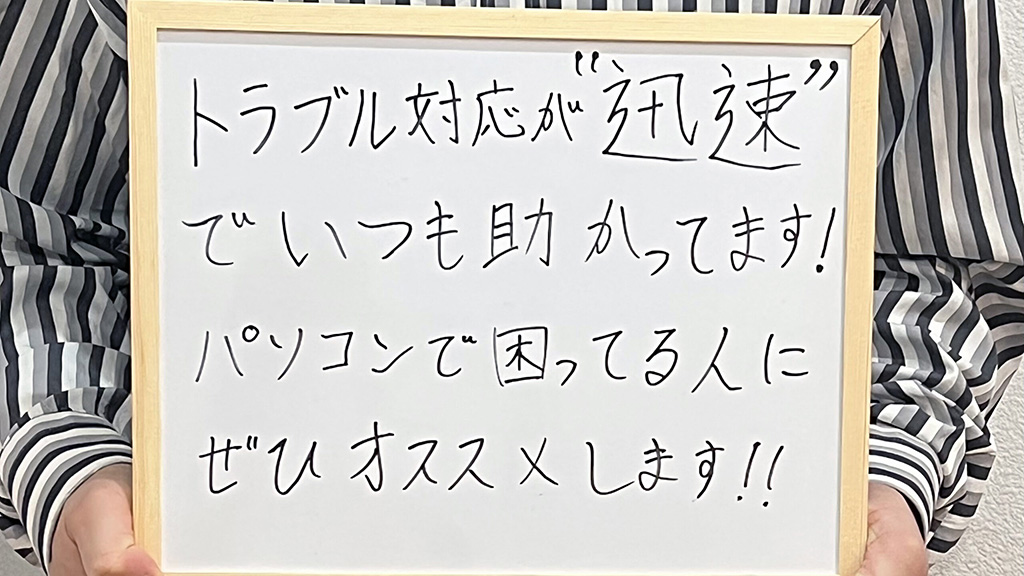 トラブル対応が“迅速”
でいつも助かってます!
パソコンで困ってる人に
ぜひオススメします!!